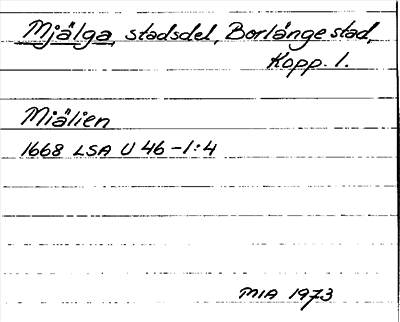 Mjälga, stadsdel, Borlänge stad,
Kopp. l.
Miälien
1668 LSA U 46-1:4
MIA 1973